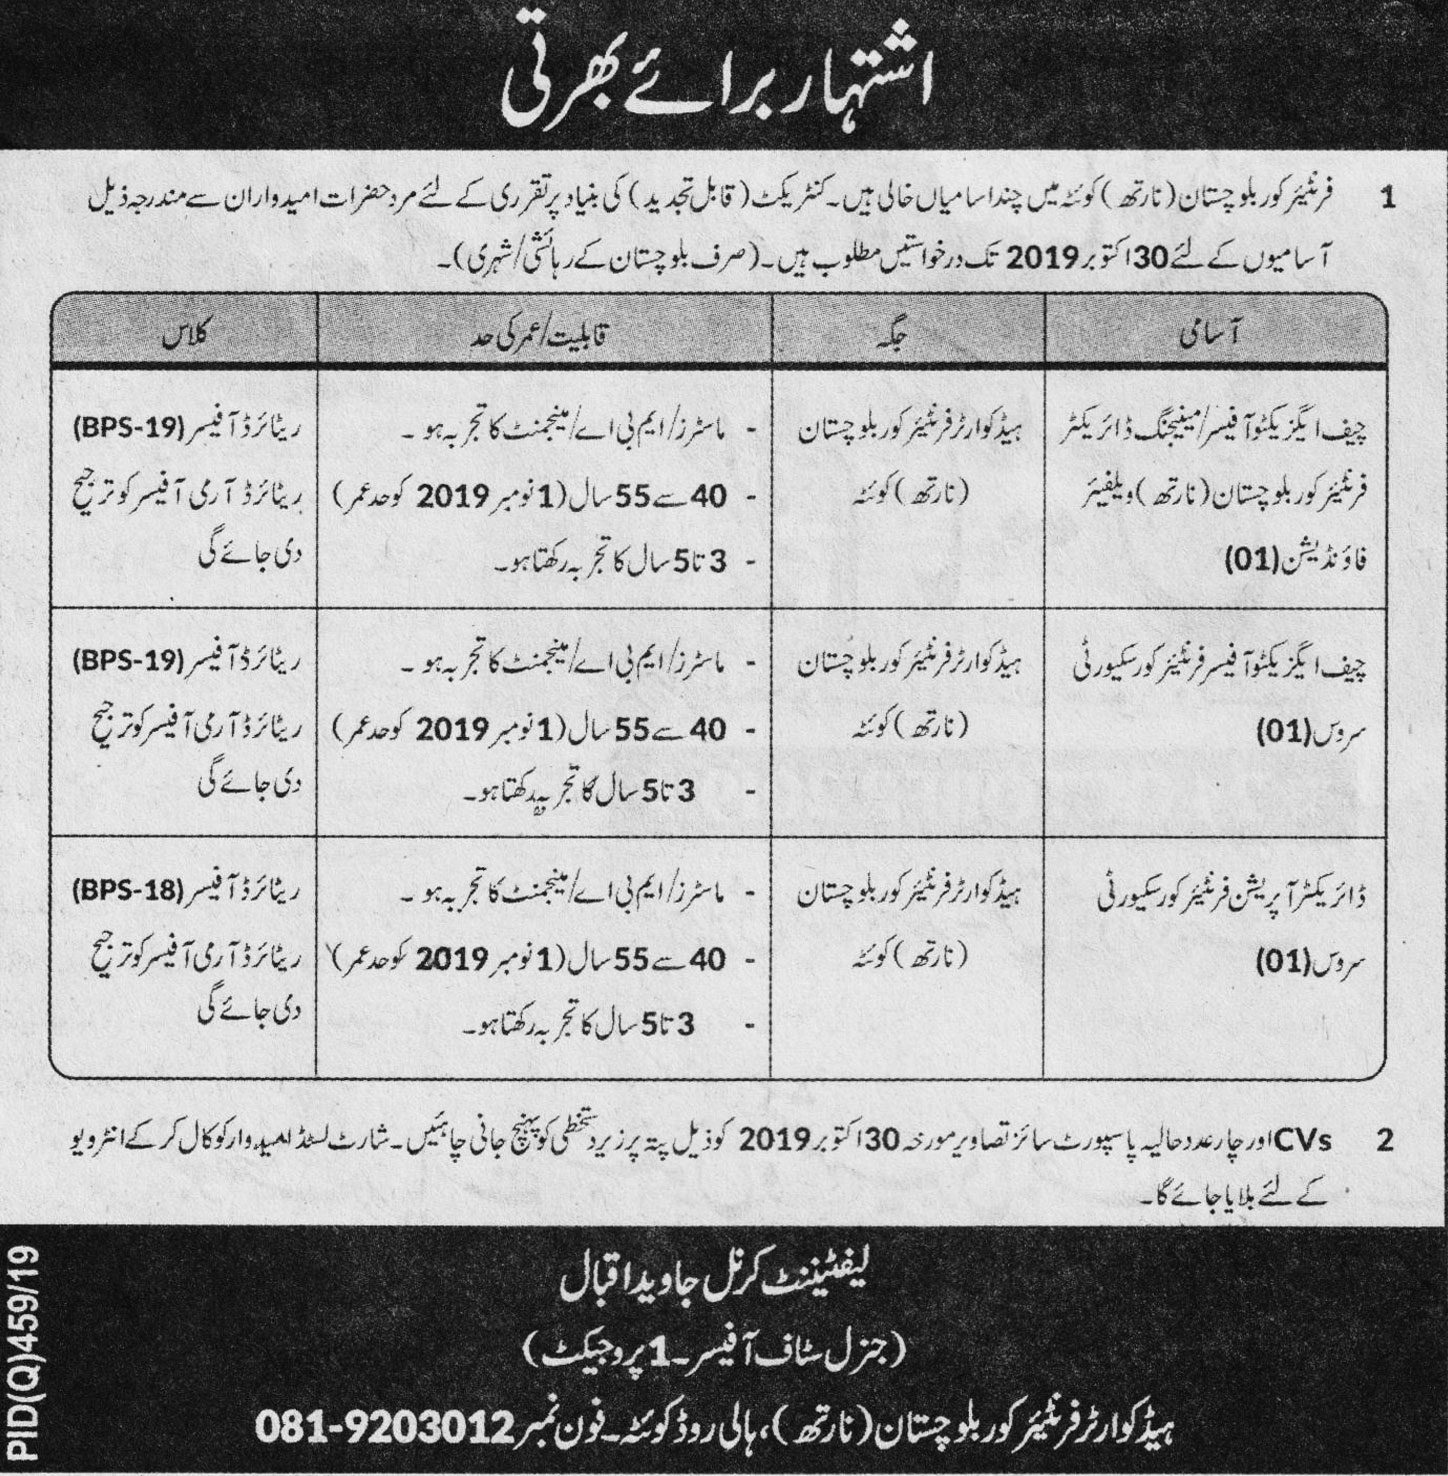 اشتہار برائے بھرتی
1 فرنٹیئر کور بلوچستان (نارتھ) کوئٹہ میں چند اسامیاں خالی ہیں۔ کنٹریکٹ (قابل تجدید) کی بنیاد پر تقرری کے لئے مرد حضرات امیدواران سے مندرجہ ذیل
آسامیوں کے لئے 30 اکتوبر 2019 تک درخواستیں مطلوب ہیں۔ (صرف بلوچستان کے رہائشی/شہری)۔
آسامی جگہ قابلیت/عمر کی حد کلاس
چیف ایگزیکٹو آفیسر/مینیجنگ ڈائریکٹر ہیڈکوارٹر فرنٹیئر کور بلوچستان - ماسٹرز/ایم بی اے/مینجمنٹ کا تجربہ ہو۔ ریٹائرڈ آفیسر (BPS-19)
فرنٹیئر کور بلوچستان (نارتھ) ویلفیئر (نارتھ) کوئٹہ - 40 سے 55 سال (1 نومبر 2019 کو حد عمر) ریٹائرڈ آرمی آفیسر کو ترجیح
فاؤنڈیشن (01) - 3 تا 5 سال کا تجربہ رکھتا ہو۔ دی جائے گی
چیف ایگزیکٹو آفیسر فرنٹیئر کور سکیورٹی ہیڈکوارٹر فرنٹیئر کور بلوچستان - ماسٹرز/ایم بی اے/مینجمنٹ کا تجربہ ہو۔ ریٹائرڈ آفیسر (BPS-19)
سروس (01) (نارتھ) کوئٹہ - 40 سے 55 سال (1 نومبر 2019 کو حد عمر) ریٹائرڈ آرمی آفیسر کو ترجیح
- 3 تا 5 سال کا تجربہ رکھتا ہو۔ دی جائے گی
ڈائریکٹر آپریشن فرنٹیئر کور سکیورٹی ہیڈکوارٹر فرنٹیئر کور بلوچستان - ماسٹرز/ایم بی اے/مینجمنٹ کا تجربہ ہو۔ ریٹائرڈ آفیسر (BPS-18)
سروس (01) (نارتھ) کوئٹہ - 40 سے 55 سال (1 نومبر 2019 کو حد عمر) ریٹائرڈ آرمی آفیسر کو ترجیح
- 3 تا 5 سال کا تجربہ رکھتا ہو۔ دی جائے گی
2 CVs اور چار عدد حالیہ پاسپورٹ سائز تصاویر مورخہ 30 اکتوبر 2019 کو ذیل پتہ پر زیر دستخطی کو پہنچ جانی چاہئیں۔ شارٹ لسٹڈ امیدوار کو کال کر کے انٹرویو
کے لئے بلایا جائے گا۔
لیفٹیننٹ کرنل جاوید اقبال
(جنرل سٹاف آفیسر۔1 پروجیکٹ)
ہیڈکوارٹر فرنٹیئر کور بلوچستان (نارتھ)، ہالی روڈ کوئٹہ۔ فون نمبر 081-9203012
PID(Q)459/19